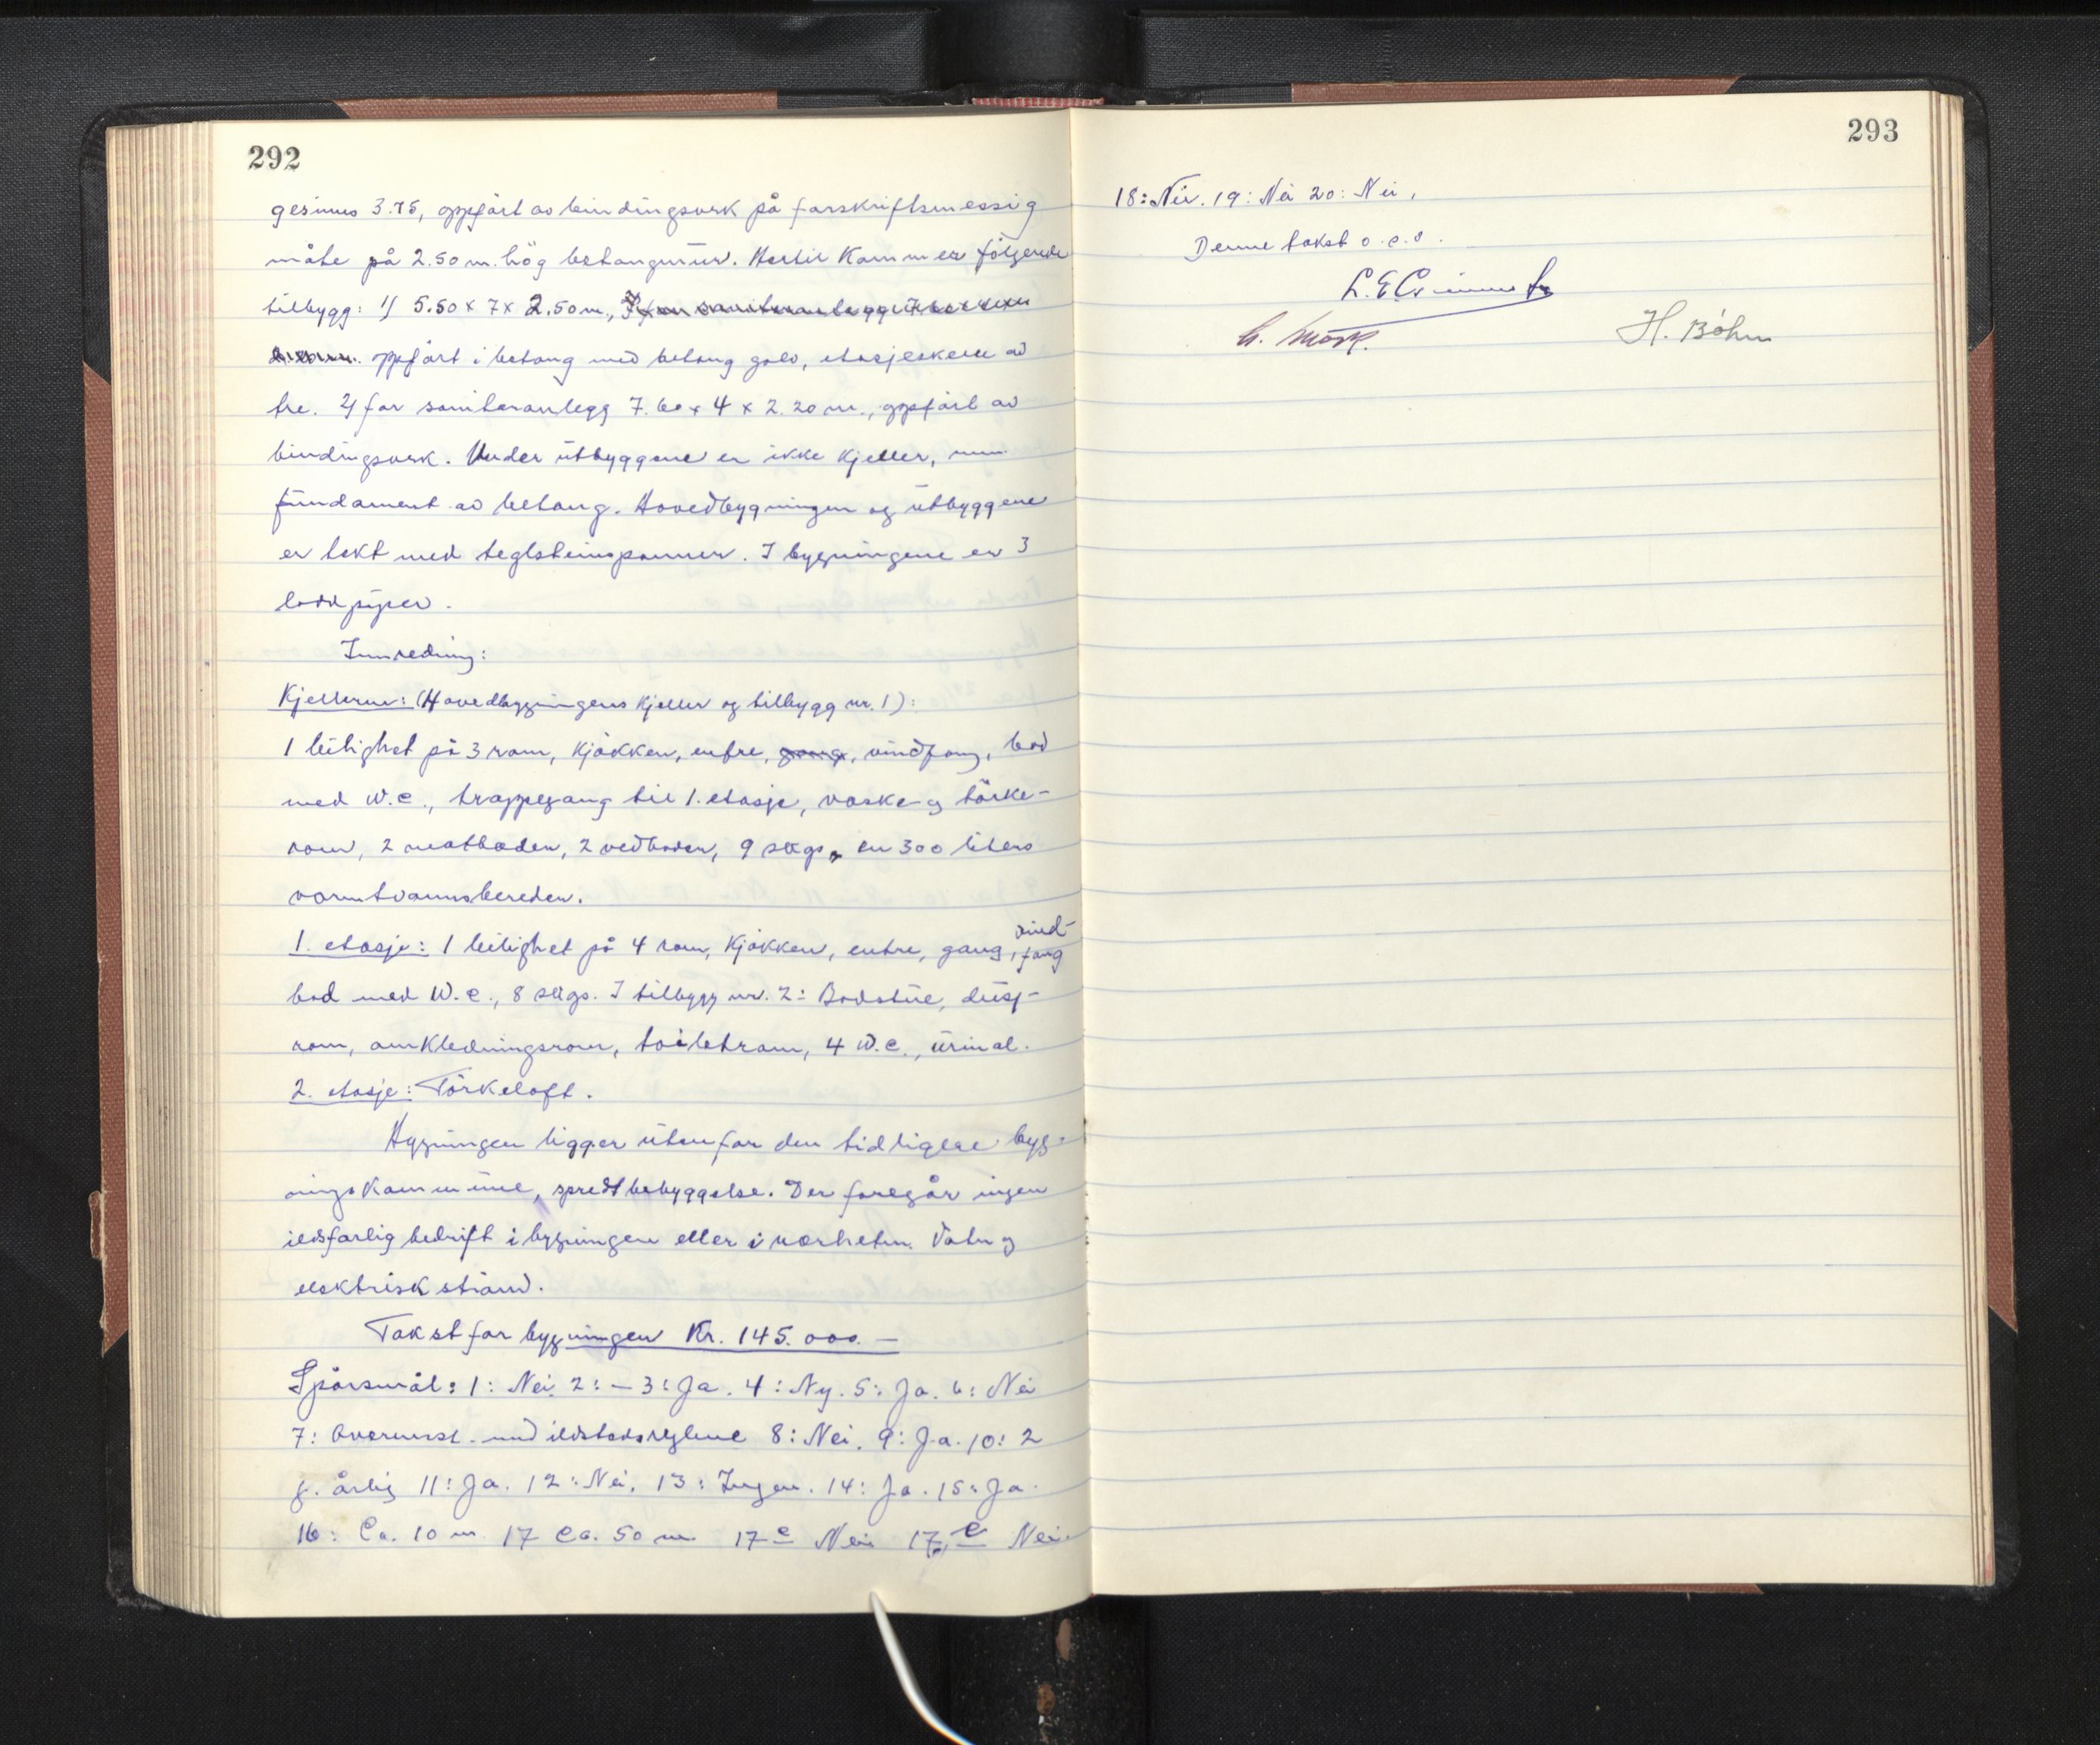 292
gesimus 3.75, oppfört av bindingsverk på forskriftsmessig
måte på 2.50 m. hög betongmur. Hertil kommer følgende
tilbygg: 1) 5.50 x 7 x 2.50 m.,
oppfört i betong med betong golv, etasjeskille av
tre. 2) for saniteranlegg 7.60 x 4 x 2.20 m., oppfört av
bindingsverk. Under utbyggene er ikke kjeller, men
fundament av betong. Hovedbygningen og utbyggene
er tekt med teglsteinspanner. I bygningene er 3
loddpiper.
Innredning:
Kjelleren: (Hovedbygningens kjeller og tilbygg nr. 1):
1 leilighet på 3 rom, kjökken, entre, gang, vindfang, bad
med W.c., trappegang til 1. etasje, vaske- og törke-
rom, 2 matboder, 2 vedboder, 9 skgs, en 300 liters
varmtvannsbereder.
1. etasje: 1 leilighet på 4 rom, kjökken, entre, gang, vind-
fang
bad med W.c., 8 skgs. I tilbygg nr. 2: Badstue, dusj-
rom, omkledningsrom, toiletrom, 4 W.c., urinal.
2. etasje: Törkeloft.
Bygningen ligger utenfor den tidligere byg-
ningskommune, spredt bebyggelse. Der foregår ingen
ildsfarlig bedrift i bygningen eller i nærheten. Vatn og
elektrisk ström.
Takst for bygningen Kr. 145.000.—
Spörsmål: 1: Nei. 2: — 3: Ja. 4: Ny. 5: Ja. 6: Nei
7: Overensst. med ildstedsreglene 8: Nei. 9: Ja. 10: 2
g. årlig 11: Ja. 12: Nei. 13: Ingen. 14: Ja. 15: Ja.
16: Ca. 10 m 17 Ca. 50 m 17 c Nei 17 e Nei.
293
18: Nei. 19: Nei 20: Nei.
Denne takst o.s.v.
H. Böhm